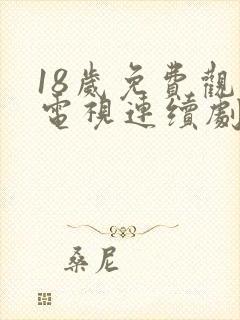 18歲免費觀
電視連續劇
桑尼